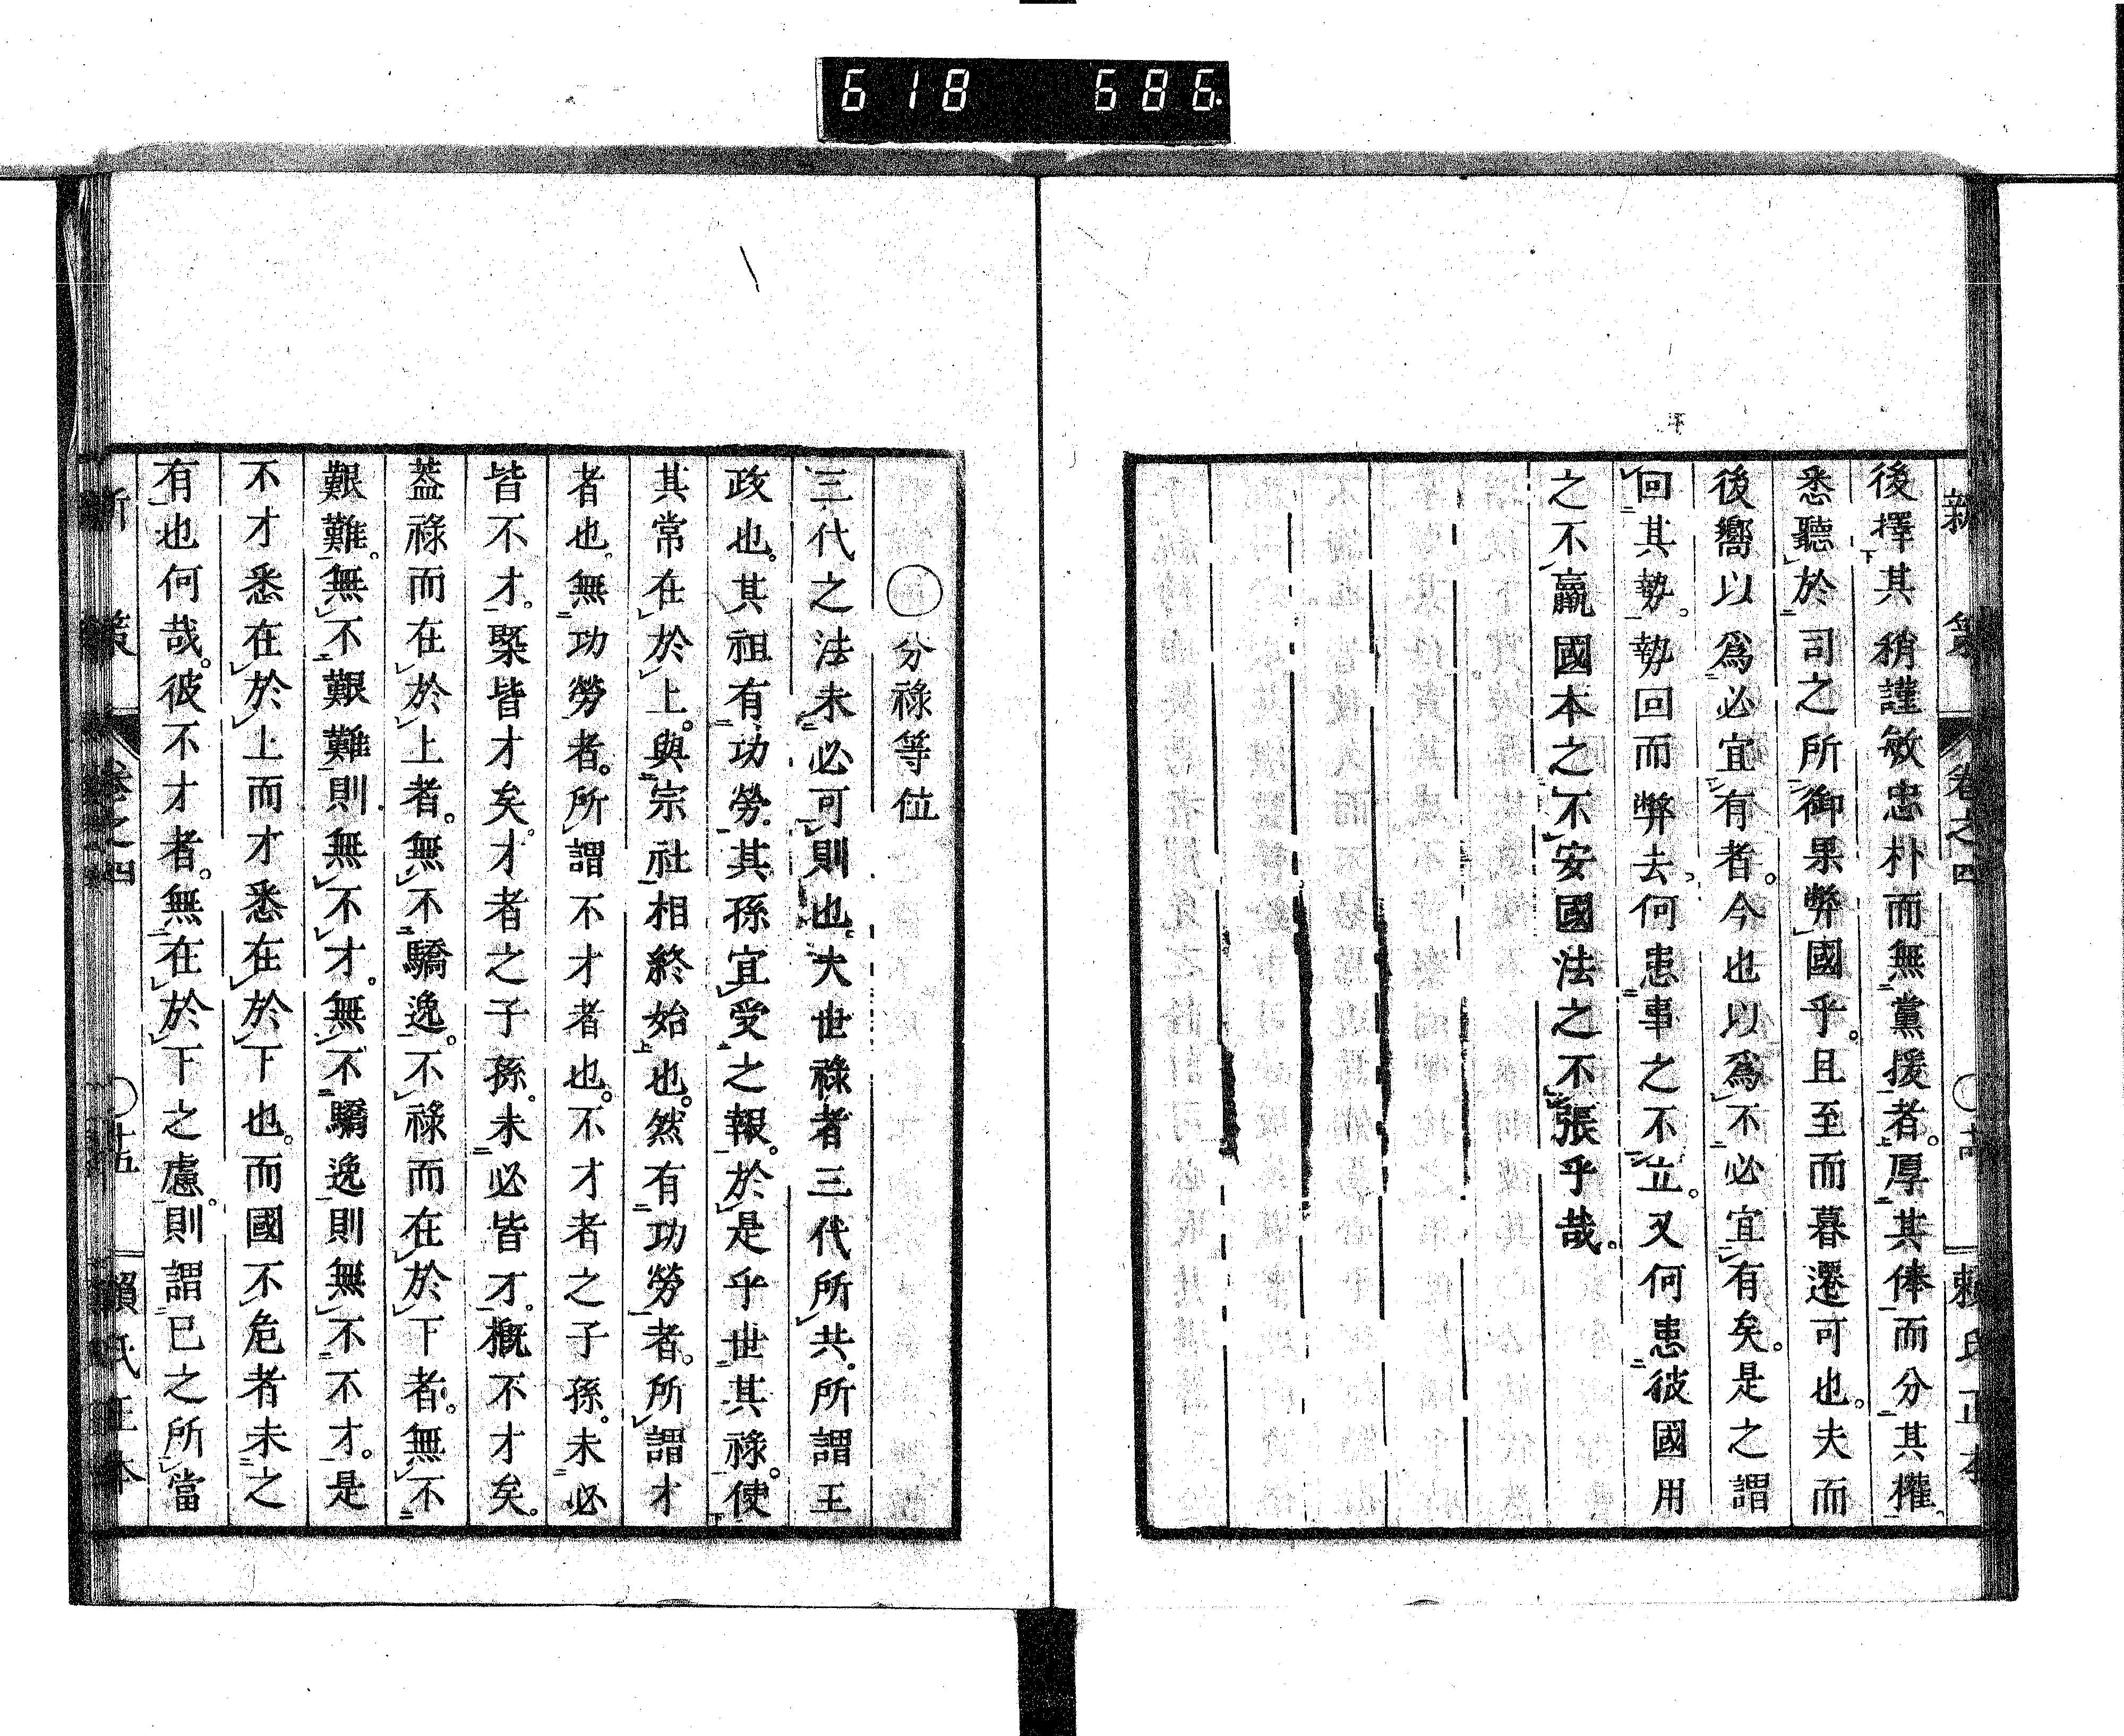 618 686
新策 卷之四 〇 賴氏正本
後擇其稍謹敏忠朴而無黨援者。厚其俸而分其權、
悉聽於司之所御果弊國乎。且至而暮遷可也。夫而
後嚮以爲必宜有者。今也以爲不必宜有矣。是之謂
回其勢。勢回而弊去、何患事之不立。又何患彼國用
之不贏國本之不安國法之不張乎哉。
〇分祿等位
三代之法未必可則也大世祿者三代所共。所謂王
政也。其祖有功勞。其孫宜受之報。於是乎世其祿。使
其常在於上。與宗社相終始也。然有功勞者。所謂才
者也。無功勞者。所謂不才者也。不才者之子孫。未必
皆不才。槩皆才矣。才者之子孫。未必皆才。概不才矣。
蓋祿而在於上者。無不驕逸。不祿而在於下者。無不
艱難。無不艱難則無不才。無不驕逸則無不不才。是
不才悉在於上而才悉在於下也。而國不危者未之
有也何哉。彼不才者。無在於下之慮。則謂已之所當
新策 卷之四 〇 賴氏正本